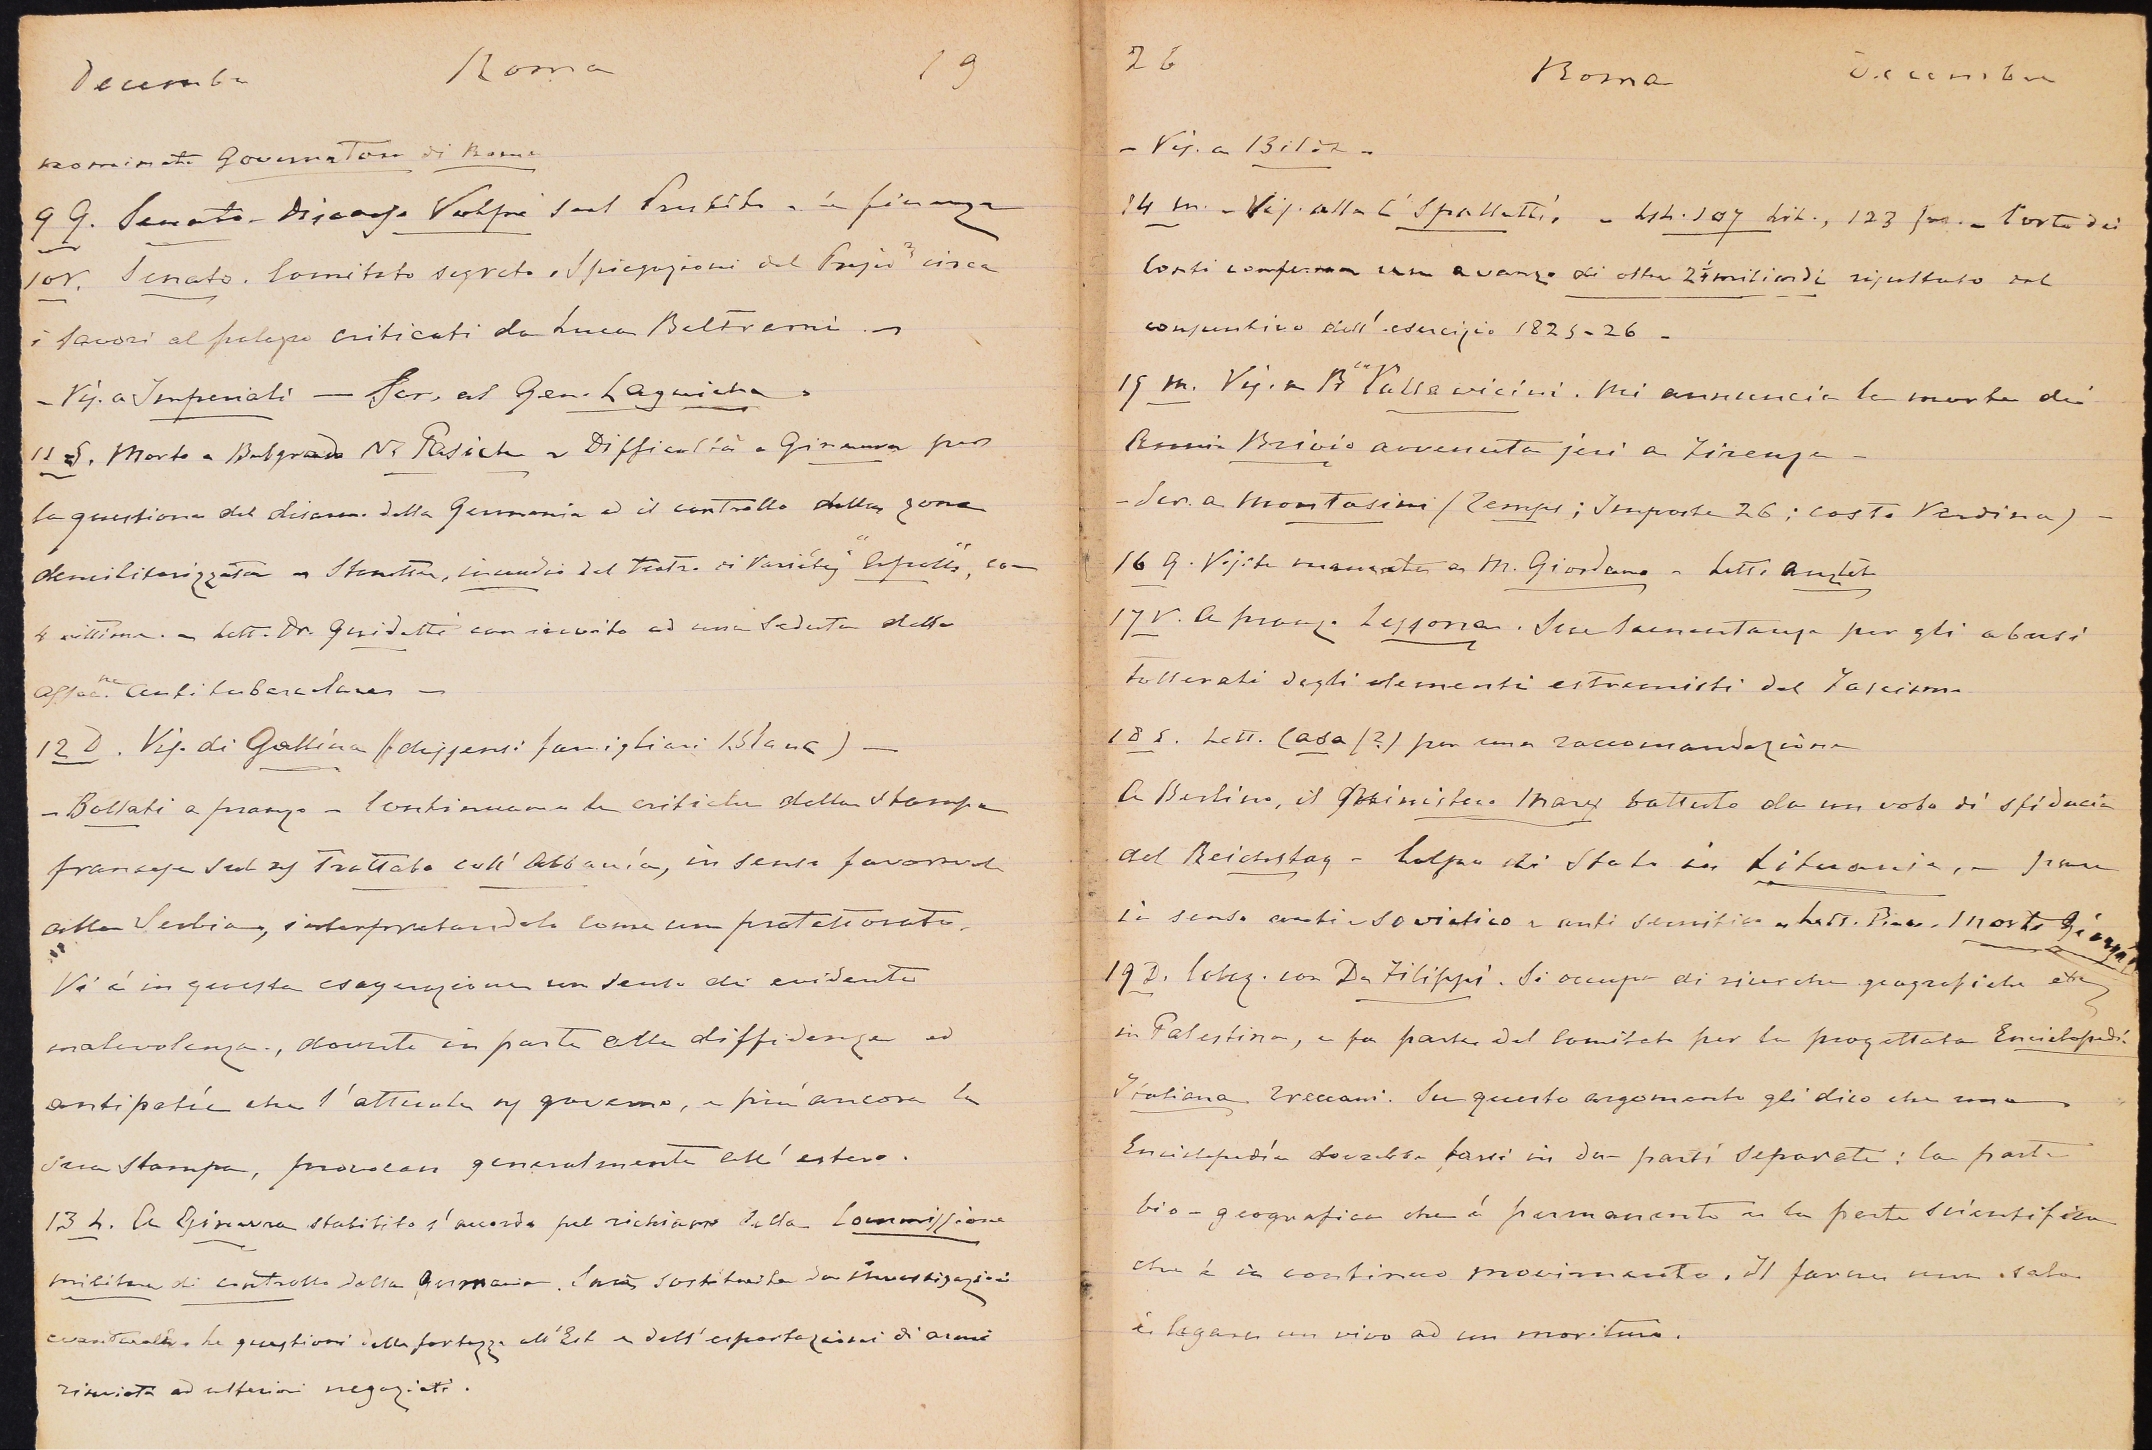 Decembre Roma 19
nominato Governatore di Roma
9 G. Senato - Discorso Volpi sul Prestito e la finanza
10 V. Senato. Comitato segreto. Spiegazioni del Presid.e circa
i lavori al palazzo criticati da Luca Beltrami. -
- Vis. a Imperiali — Scr. al Gen. Laguiche.
11 S. Morto a Belgrado N. Pasich - Difficoltà a Ginevra per
la questione del disarmo della Germania ed il controllo della zona
demilitarizzata - incendio del teatro di Varietés "Apollo", con
4 vittime. - Lett. Dr. Guidetti con invito ad una seduta della
Assoc.ne antitubercolare -
12 D. Vis. di Gallina (dissensi famigliari) —
- Bollati a pranzo - Continuano le critiche della stampa
francese sul ns trattato coll'Albania, in senso favorevole
alla Serbia, interpretandolo come un protettorato.
Vi è in questa esagerazione un senso di evidente
malevolenza, dovuta in parte alla diffidenza ed
antipatia che l'attuale ns governo, e più ancora la
sua stampa, provocan generalmente all'estero.
13 L. A Ginevra stabilito l'accordo pel richiamo della Commissione
militare di controllo dalla Germania. Sarà sostituita da investigazioni
eventuali. Le questioni delle fortezze all'Est e dell'esportazioni di armi
rinviata ad ulteriori negoziati.
26 Roma Decembre
- Vis. a
14 m. - Vis. alla C. Spalletti. - Est. 107 Lit., 123 fr. - Corte dei
Conti conferma un avanzo di oltre 2 miliardi risultato dal
consuntivo dell'esercizio 1825-26 -
15 m. Vis. a Pallavicini. Mi annuncia la morte di
Annia Brivio avvenuta jeri a Firenze -
- Scr. a Montasini (Temps; Imposte 26; casto Verdina) -
16 G. Visita mancata a M. Giordano - Lett.
17 V. A pranzo Lessona. Sue lamentanze per gli abusi
tollerati dagli elementi estremisti del Fascismo
18 S. Lett. Casa (?) per una raccomandazione
A Berlino, il Ministero Marx battuto da un voto di sfiducia
del Reichstag - Colpo di Stato in Lituania, - pare
in senso anti-sovietico e anti semitico - Lett. - Morto
19 D. Colaz. con De Filippi. Si occupa di ricerche geografiche
in Palestina, e fa parte del Comitato per la progettata Enciclopedia
Italiana Treccani. Su questo argomento gli dico che una
Enciclopedia dovrebbe farsi in due parti separate: la parte
bio-geografica che è permanente e la parte scientifica
che è in continuo movimento. Il farne una sola
è legare un vivo ad un morituro.